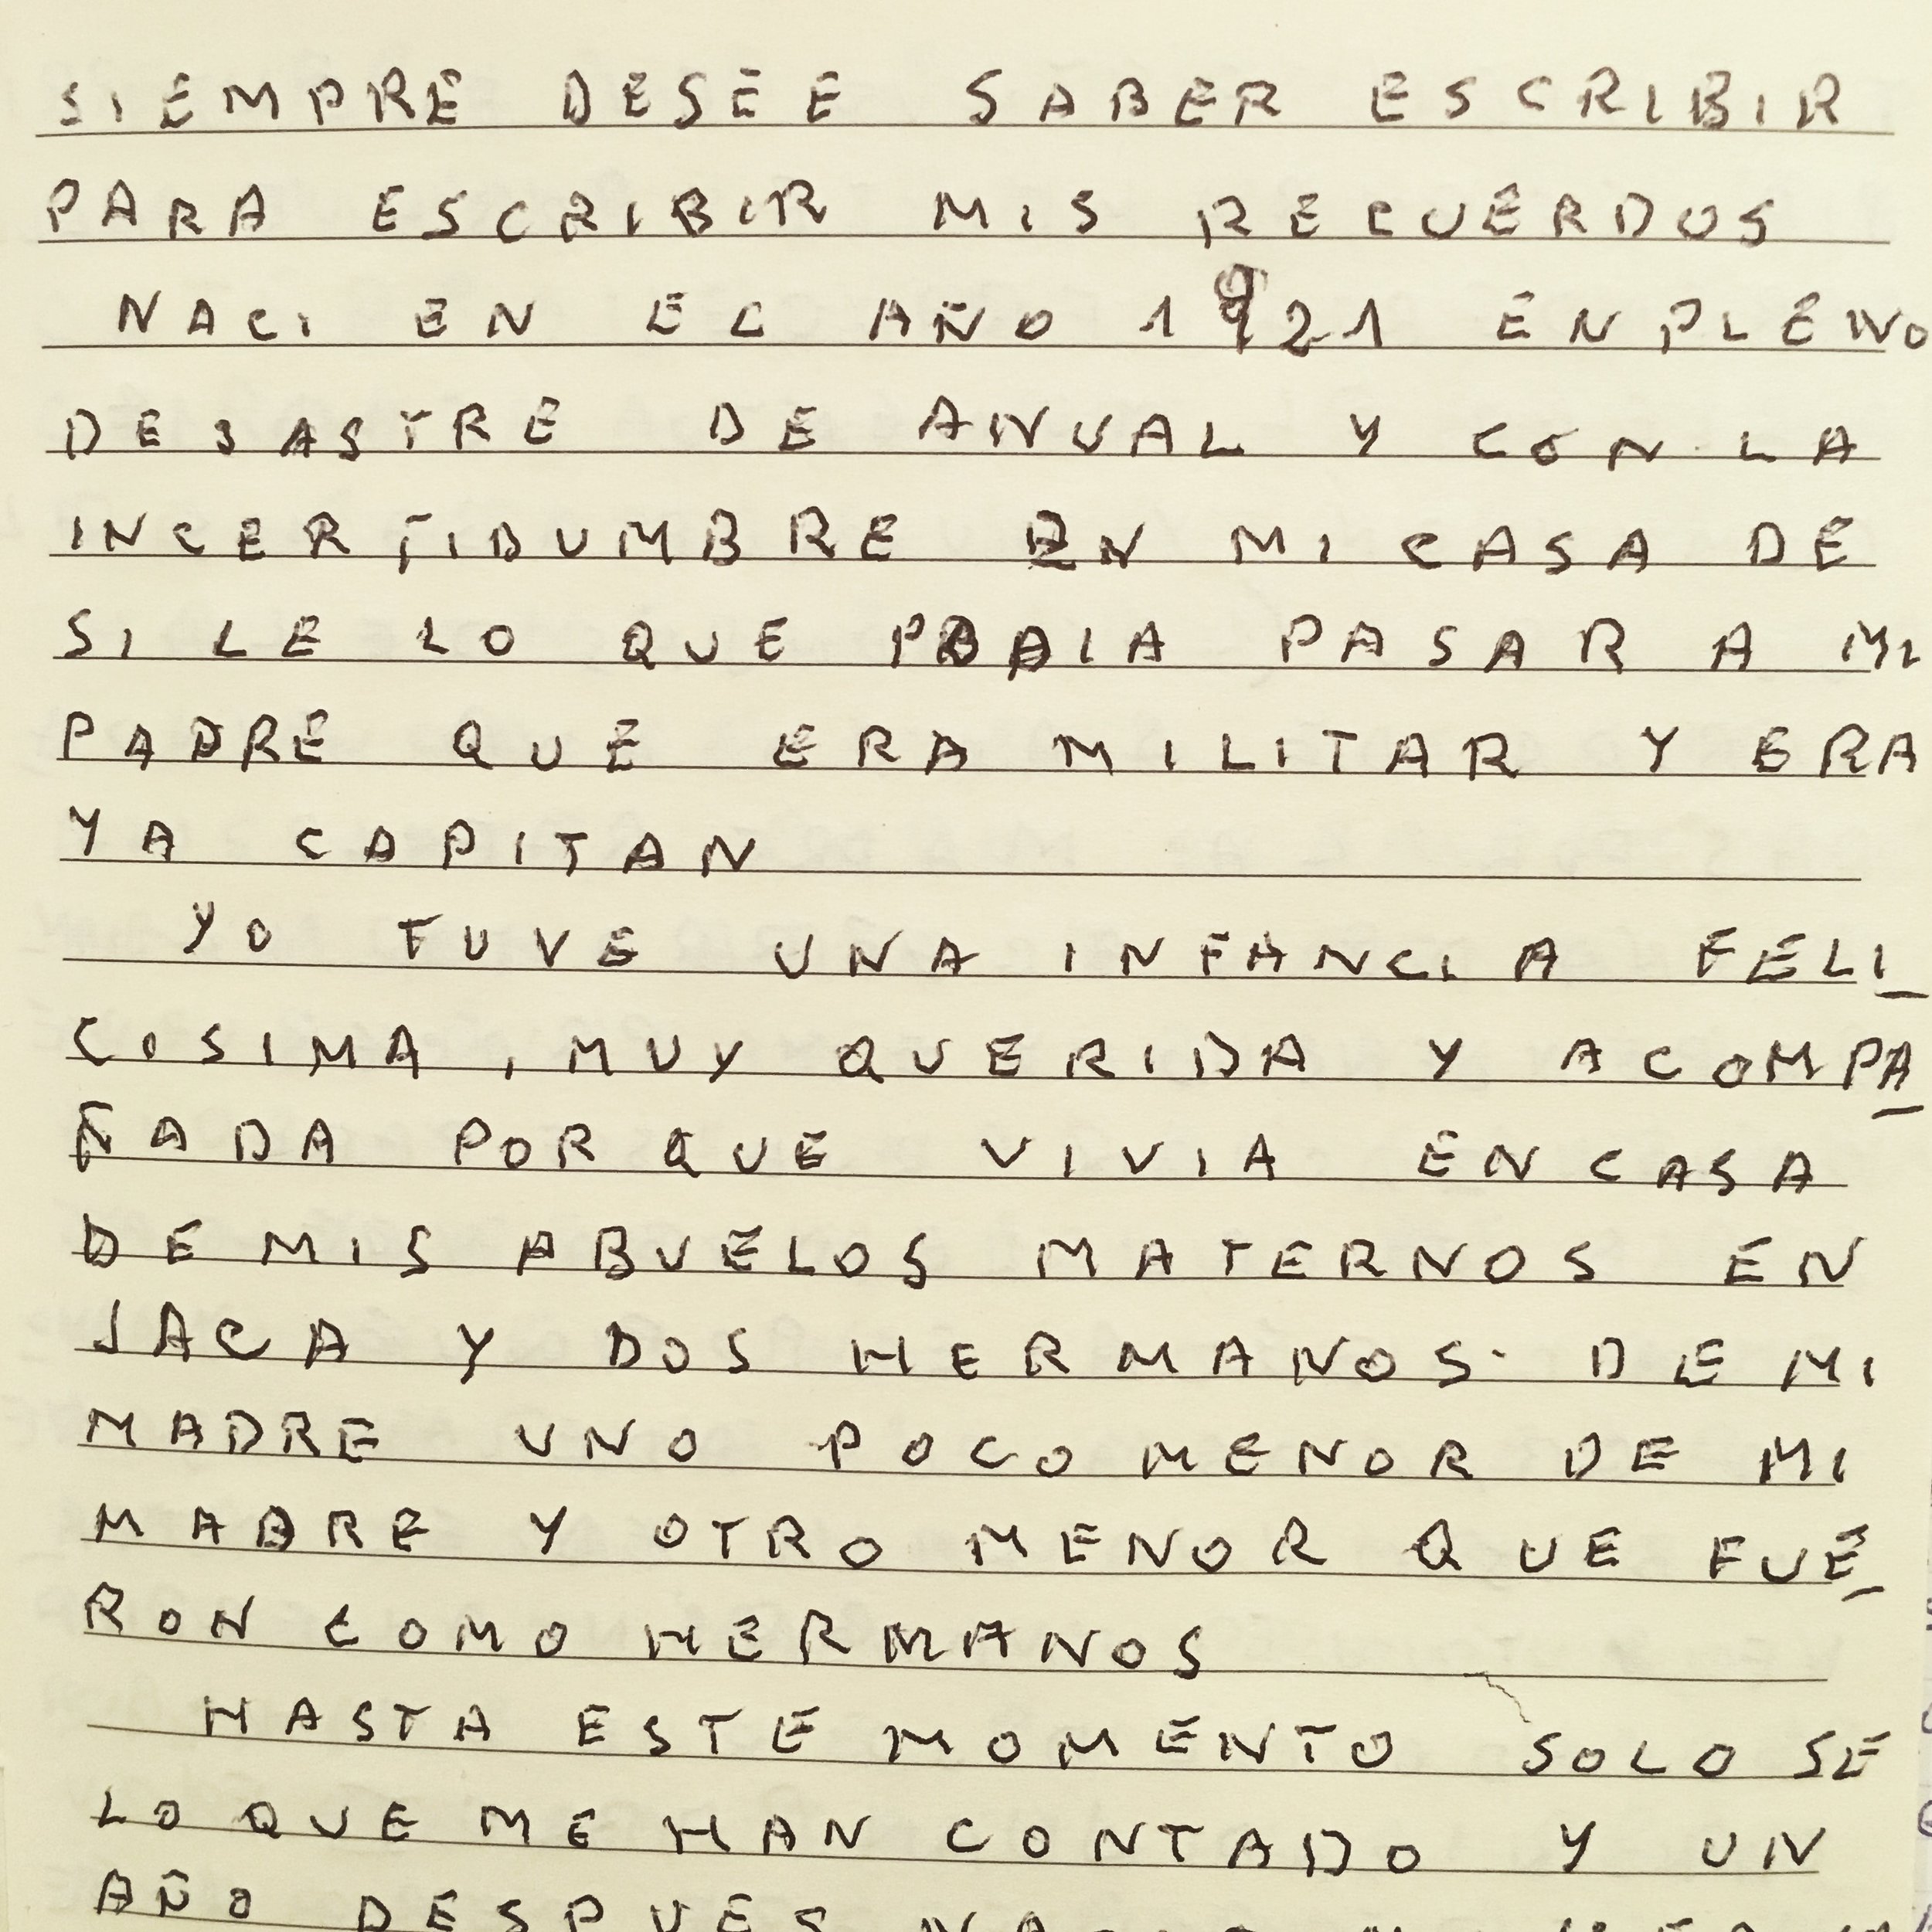 SIEMPRE DESEE SABER ESCRIBIR
PARA ESCRIBIR MIS RECUERDOS
NACI EN EL AÑO 1921 EN PLENO
DESASTRE DE ANUAL Y CON LA
INCERTIDUMBRE EN MI CASA DE
SI LE LO QUE PODIA PASAR A MI
PADRE QUE ERA MILITAR Y ERA
YA CAPITAN
YO TUVE UNA INFANCIA FELI
COSIMA, MUY QUERIDA Y ACOMPA
ÑADA PORQUE VIVIA EN CASA
DE MIS ABUELOS MATERNOS EN
JACA Y DOS HERMANOS DE MI
MADRE UNO POCO MENOR DE MI
MADRE Y OTRO MENOR QUE FUE
RON COMO HERMANOS
HASTA ESTE MOMENTO SOLO SE
LO QUE ME HAN CONTADO Y UN
AÑO DESPUES